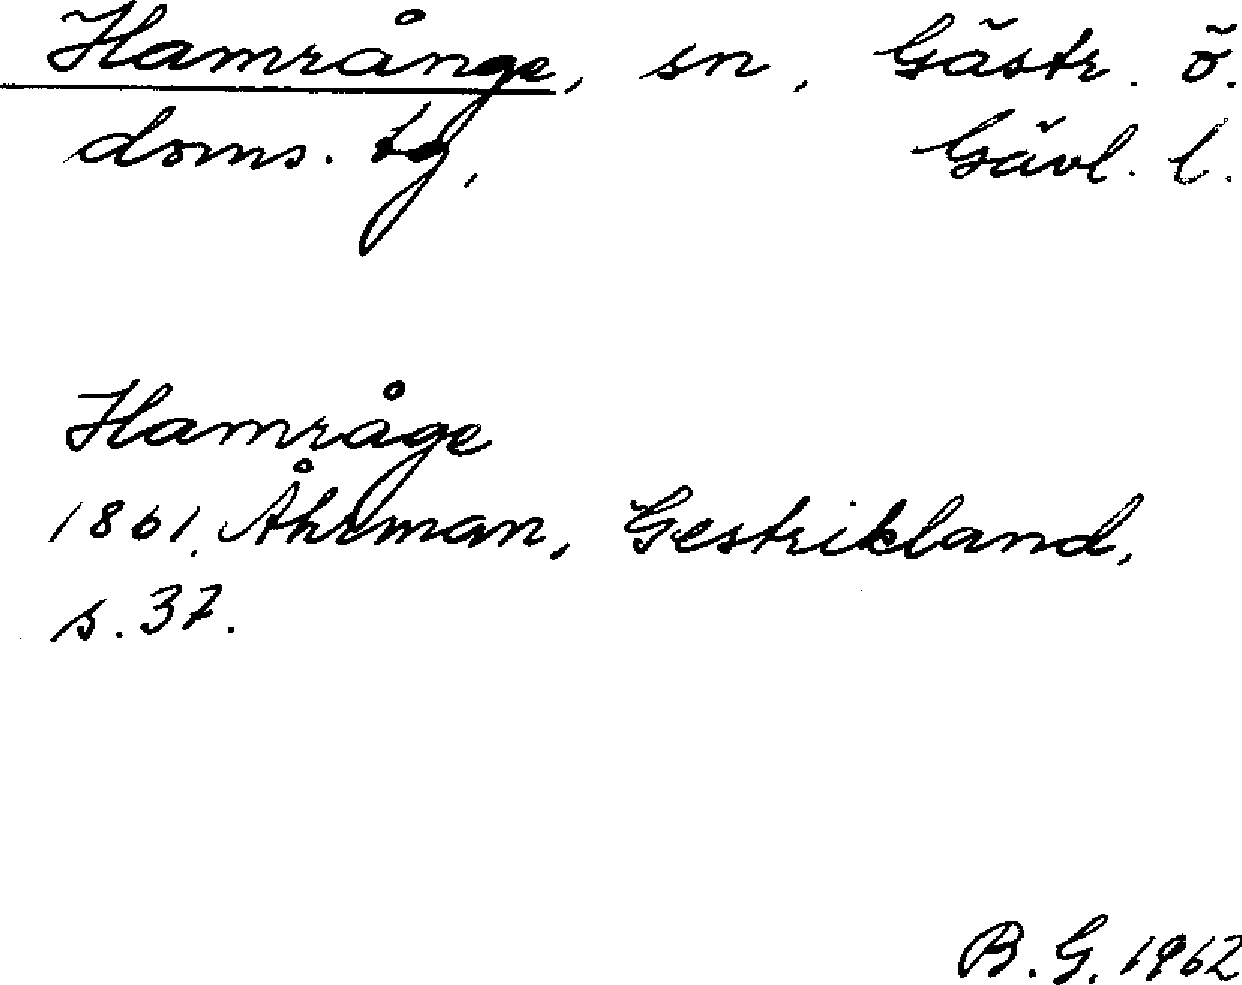 Hamrånge, sn, Gästr. ö.
doms. tg, Gävl. l.
Hamråge
1861, Åhrman, Gestrikland,
s. 37.
B. G. 1962